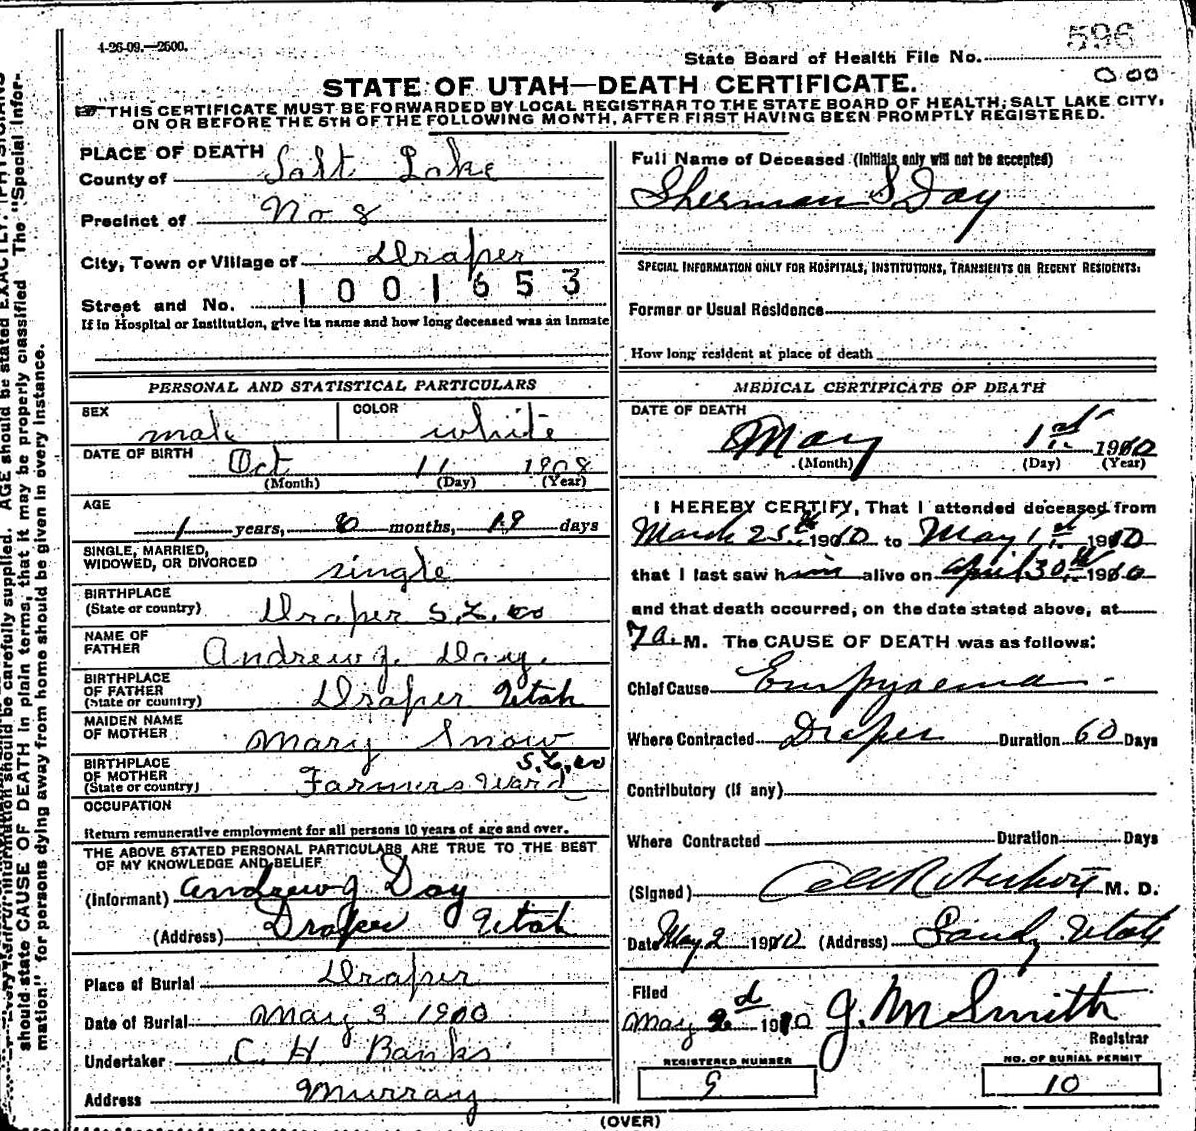 4-26-09.—2500.
State Board of Health File No. 596
000
STATE OF UTAH—DEATH CERTIFICATE.
THIS CERTIFICATE MUST BE FORWARDED BY LOCAL REGISTRAR TO THE STATE BOARD OF HEALTH, SALT LAKE CITY,
ON OR BEFORE THE 5TH OF THE FOLLOWING MONTH, AFTER FIRST HAVING BEEN PROMPTLY REGISTERED.
PLACE OF DEATH
County of Salt Lake
Precinct of No 8
City, Town or Village of Draper
Street and No. 1001653
If in Hospital or Institution, give its name and how long deceased was an inmate
PERSONAL AND STATISTICAL PARTICULARS
SEX male COLOR white
DATE OF BIRTH Oct 11 1908
(Month) (Day) (Year)
AGE
1 years, 6 months, 19 days
SINGLE, MARRIED,
WIDOWED, OR DIVORCED single
BIRTHPLACE
(State or country) Draper S.L. co
NAME OF
FATHER Andrew J. Day.
BIRTHPLACE
OF FATHER
(State or country) Draper Utah
MAIDEN NAME
OF MOTHER Mary Snow
BIRTHPLACE S.L. co
OF MOTHER
(State or country) Farmers Ward
OCCUPATION
Return remunerative employment for all persons 10 years of age and over.
THE ABOVE STATED PERSONAL PARTICULARS ARE TRUE TO THE BEST
OF MY KNOWLEDGE AND BELIEF.
(Informant) Andrew J Day
(Address) Draper Utah
Place of Burial Draper
Date of Burial May 3 1910
Undertaker C. H. Banks
Address Murray
Full Name of Deceased (Initials only will not be accepted)
Sherman S Day
SPECIAL INFORMATION ONLY FOR HOSPITALS, INSTITUTIONS, TRANSIENTS OR RECENT RESIDENTS:
Former or Usual Residence
How long resident at place of death
MEDICAL CERTIFICATE OF DEATH
DATE OF DEATH
May 1st 1910
(Month) (Day) (Year)
I HEREBY CERTIFY, That I attended deceased from
March 25th 1910 to May 1st 1910
that I last saw him alive on April 30th 1910
and that death occurred, on the date stated above, at
7 a. M. The CAUSE OF DEATH was as follows:
Chief Cause Empyaema
Where Contracted Draper Duration 60 Days
Contributory (if any)
Where Contracted Duration Days
(Signed) M. D.
Date May 2 1910 (Address) Sandy Utah
Filed
May 2d 1910 J. M Smith
Registrar
REGISTERED NUMBER
9
NO. OF BURIAL PERMIT
10
(OVER)
should be carefully supplied. AGE should be stated EXACTLY. PHYSICIANS
should state CAUSE OF DEATH in plain terms, that it may be properly classified. The "Special Infor-
mation" for persons dying away from home should be given in every instance.